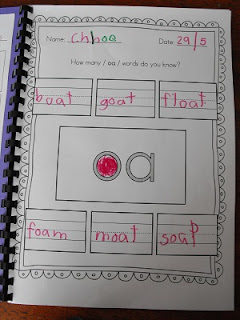 Name: Chloa Date: 29/5
How many / oa / words do you know?
boat goat float
oa
foam moat soap